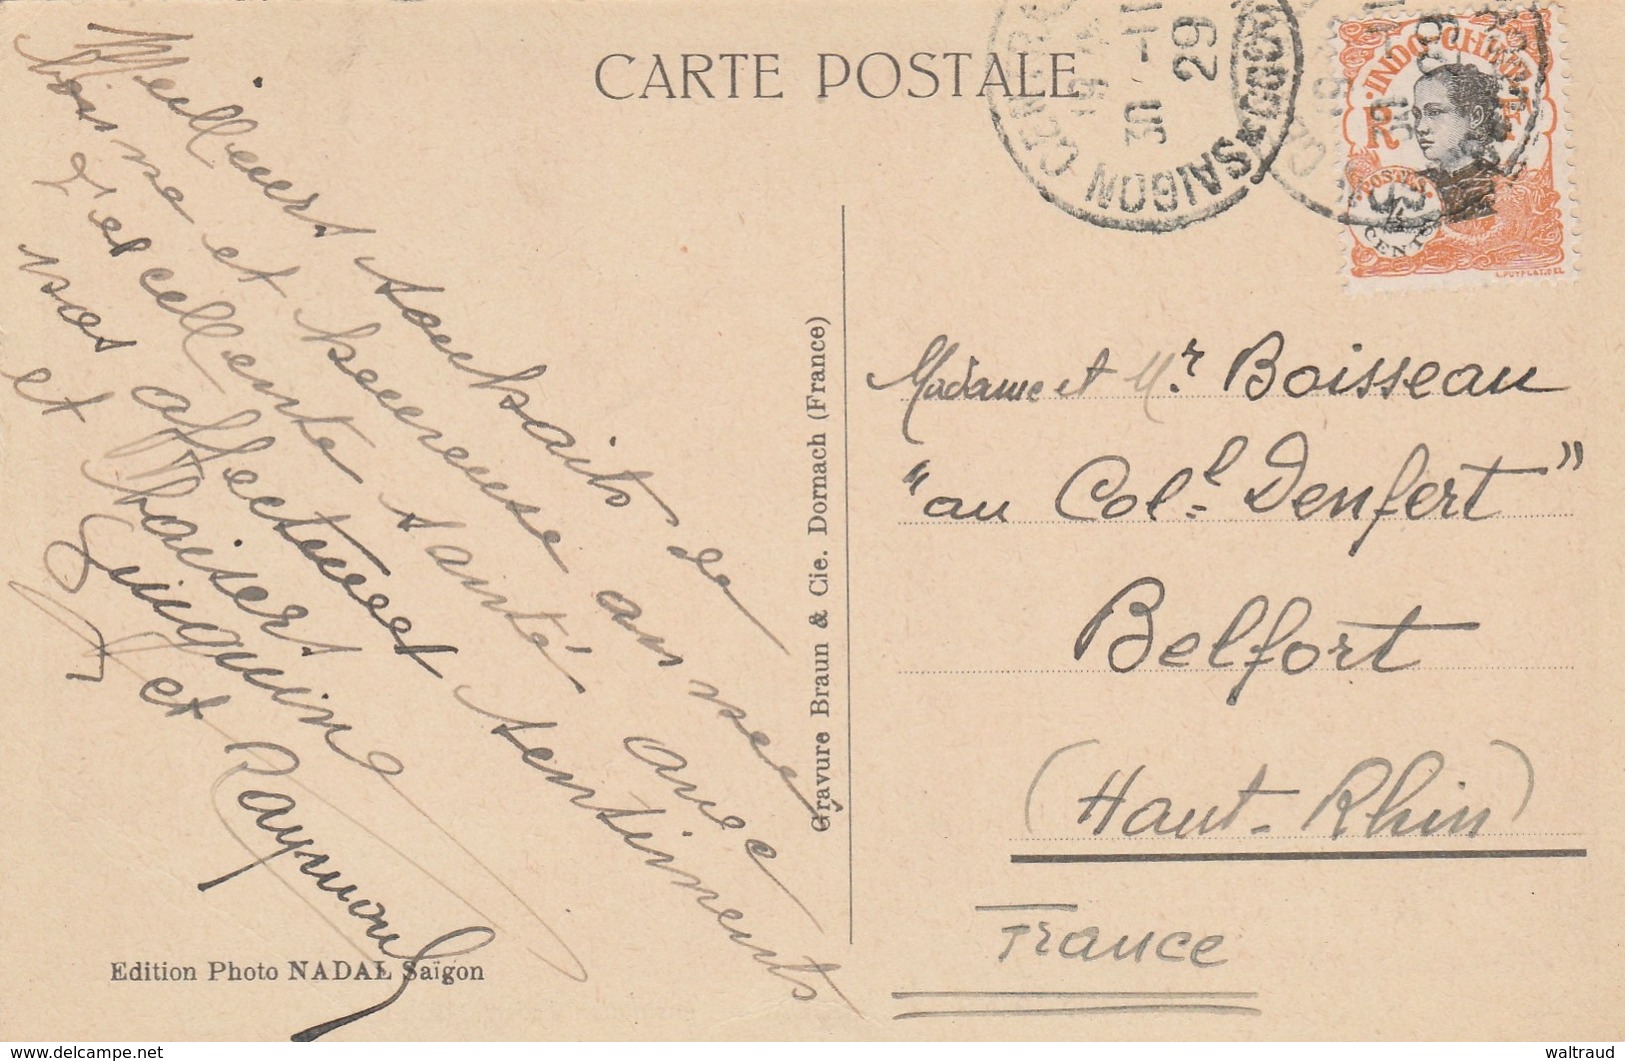 CARTE POSTALE
SAIGON
30 -11
29
INDO-CHINE
R F
POSTES
CENTS
L. PUYPLAT. DEL
Meilleurs souhaits de
bonne et heureuse année
d'excellente santé avec
nos affectueux sentiments
et baisers
et Raymond
Gravure Braun & Cie. Dornach (France)
Madame et Mr Boisseau
"au Col.l Denfert"
Belfort
(Haut-Rhin)
France
Edition Photo NADAL Saïgon
delcampe.net
waltraud